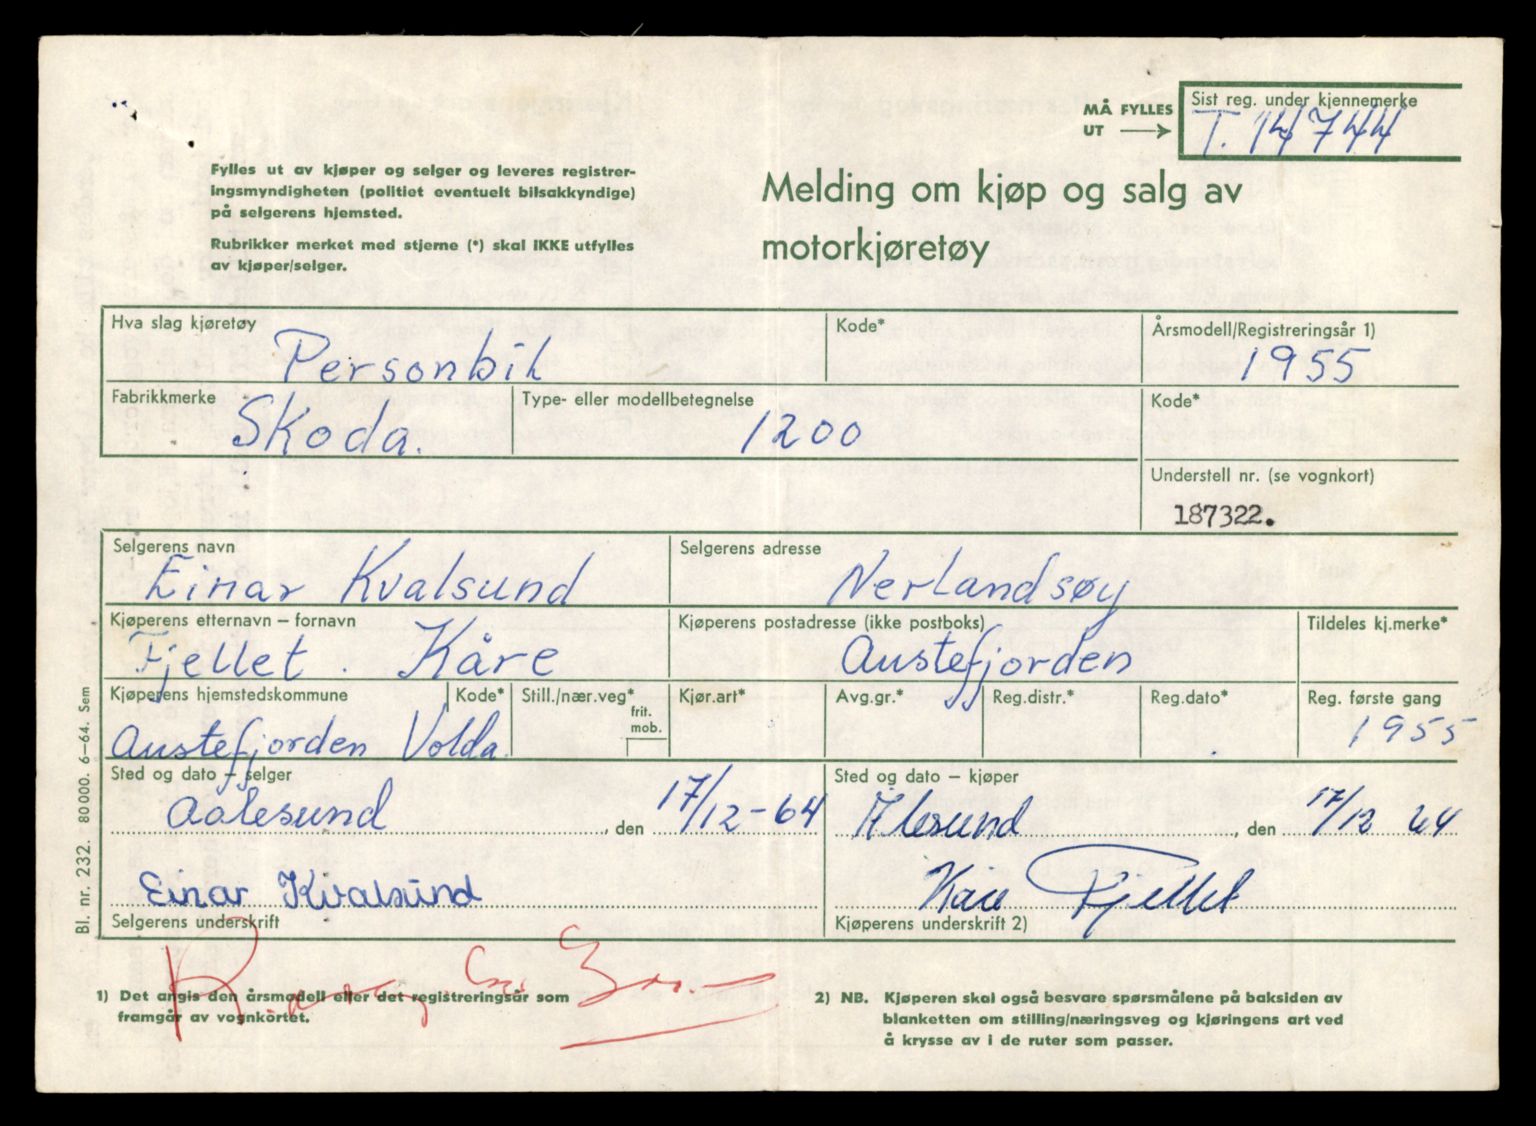 MÅ FYLLES
UT
Sist reg. under kjennemerke
T. 14744
Fylles ut av kjøper og selger og leveres registrer-
ingsmyndigheten (politiet eventuelt bilsakkyndige)
på selgerens hjemsted.
Rubrikker merket med stjerne (*) skal IKKE utfylles
av kjøper/selger.
Melding om kjøp og salg av
motorkjøretøy
Hva slag kjøretøy
Personbil
Kode*
Årsmodell/Registreringsår 1)
1955
Fabrikkmerke
Skoda.
Type- eller modellbetegnelse
1200
Kode*
Understell nr. (se vognkort)
187322.
Selgerens navn
Einar Kvalsund
Selgerens adresse
Nerlandsøy
Kjøperens etternavn – fornavn
Fjellet. Kåre
Kjøperens postadresse (ikke postboks)
Austefjorden
Tildeles kj.merke*
Kjøperens hjemstedskommune
Austefjorden Volda.
Kode*
Still./nær.veg*
frit.
mob.
Kjør.art*
Avg.gr.*
Reg.distr.*
Reg.dato*
Reg. første gang
1955
Sted og dato – selger
Aalesund, den 17/12-64
Sted og dato – kjøper
Ålesund, den 17/12 64
Einar Kvalsund
Selgerens underskrift
Kåre Fjellet
Kjøperens underskrift 2)
1) Det angis den årsmodell eller det registreringsår som
framgår av vognkortet.
2) NB. Kjøperen skal også besvare spørsmålene på baksiden av
blanketten om stilling/næringsveg og kjøringens art ved
å krysse av i de ruter som passer.
Bl. nr. 232. 80000. 6–64. Sem